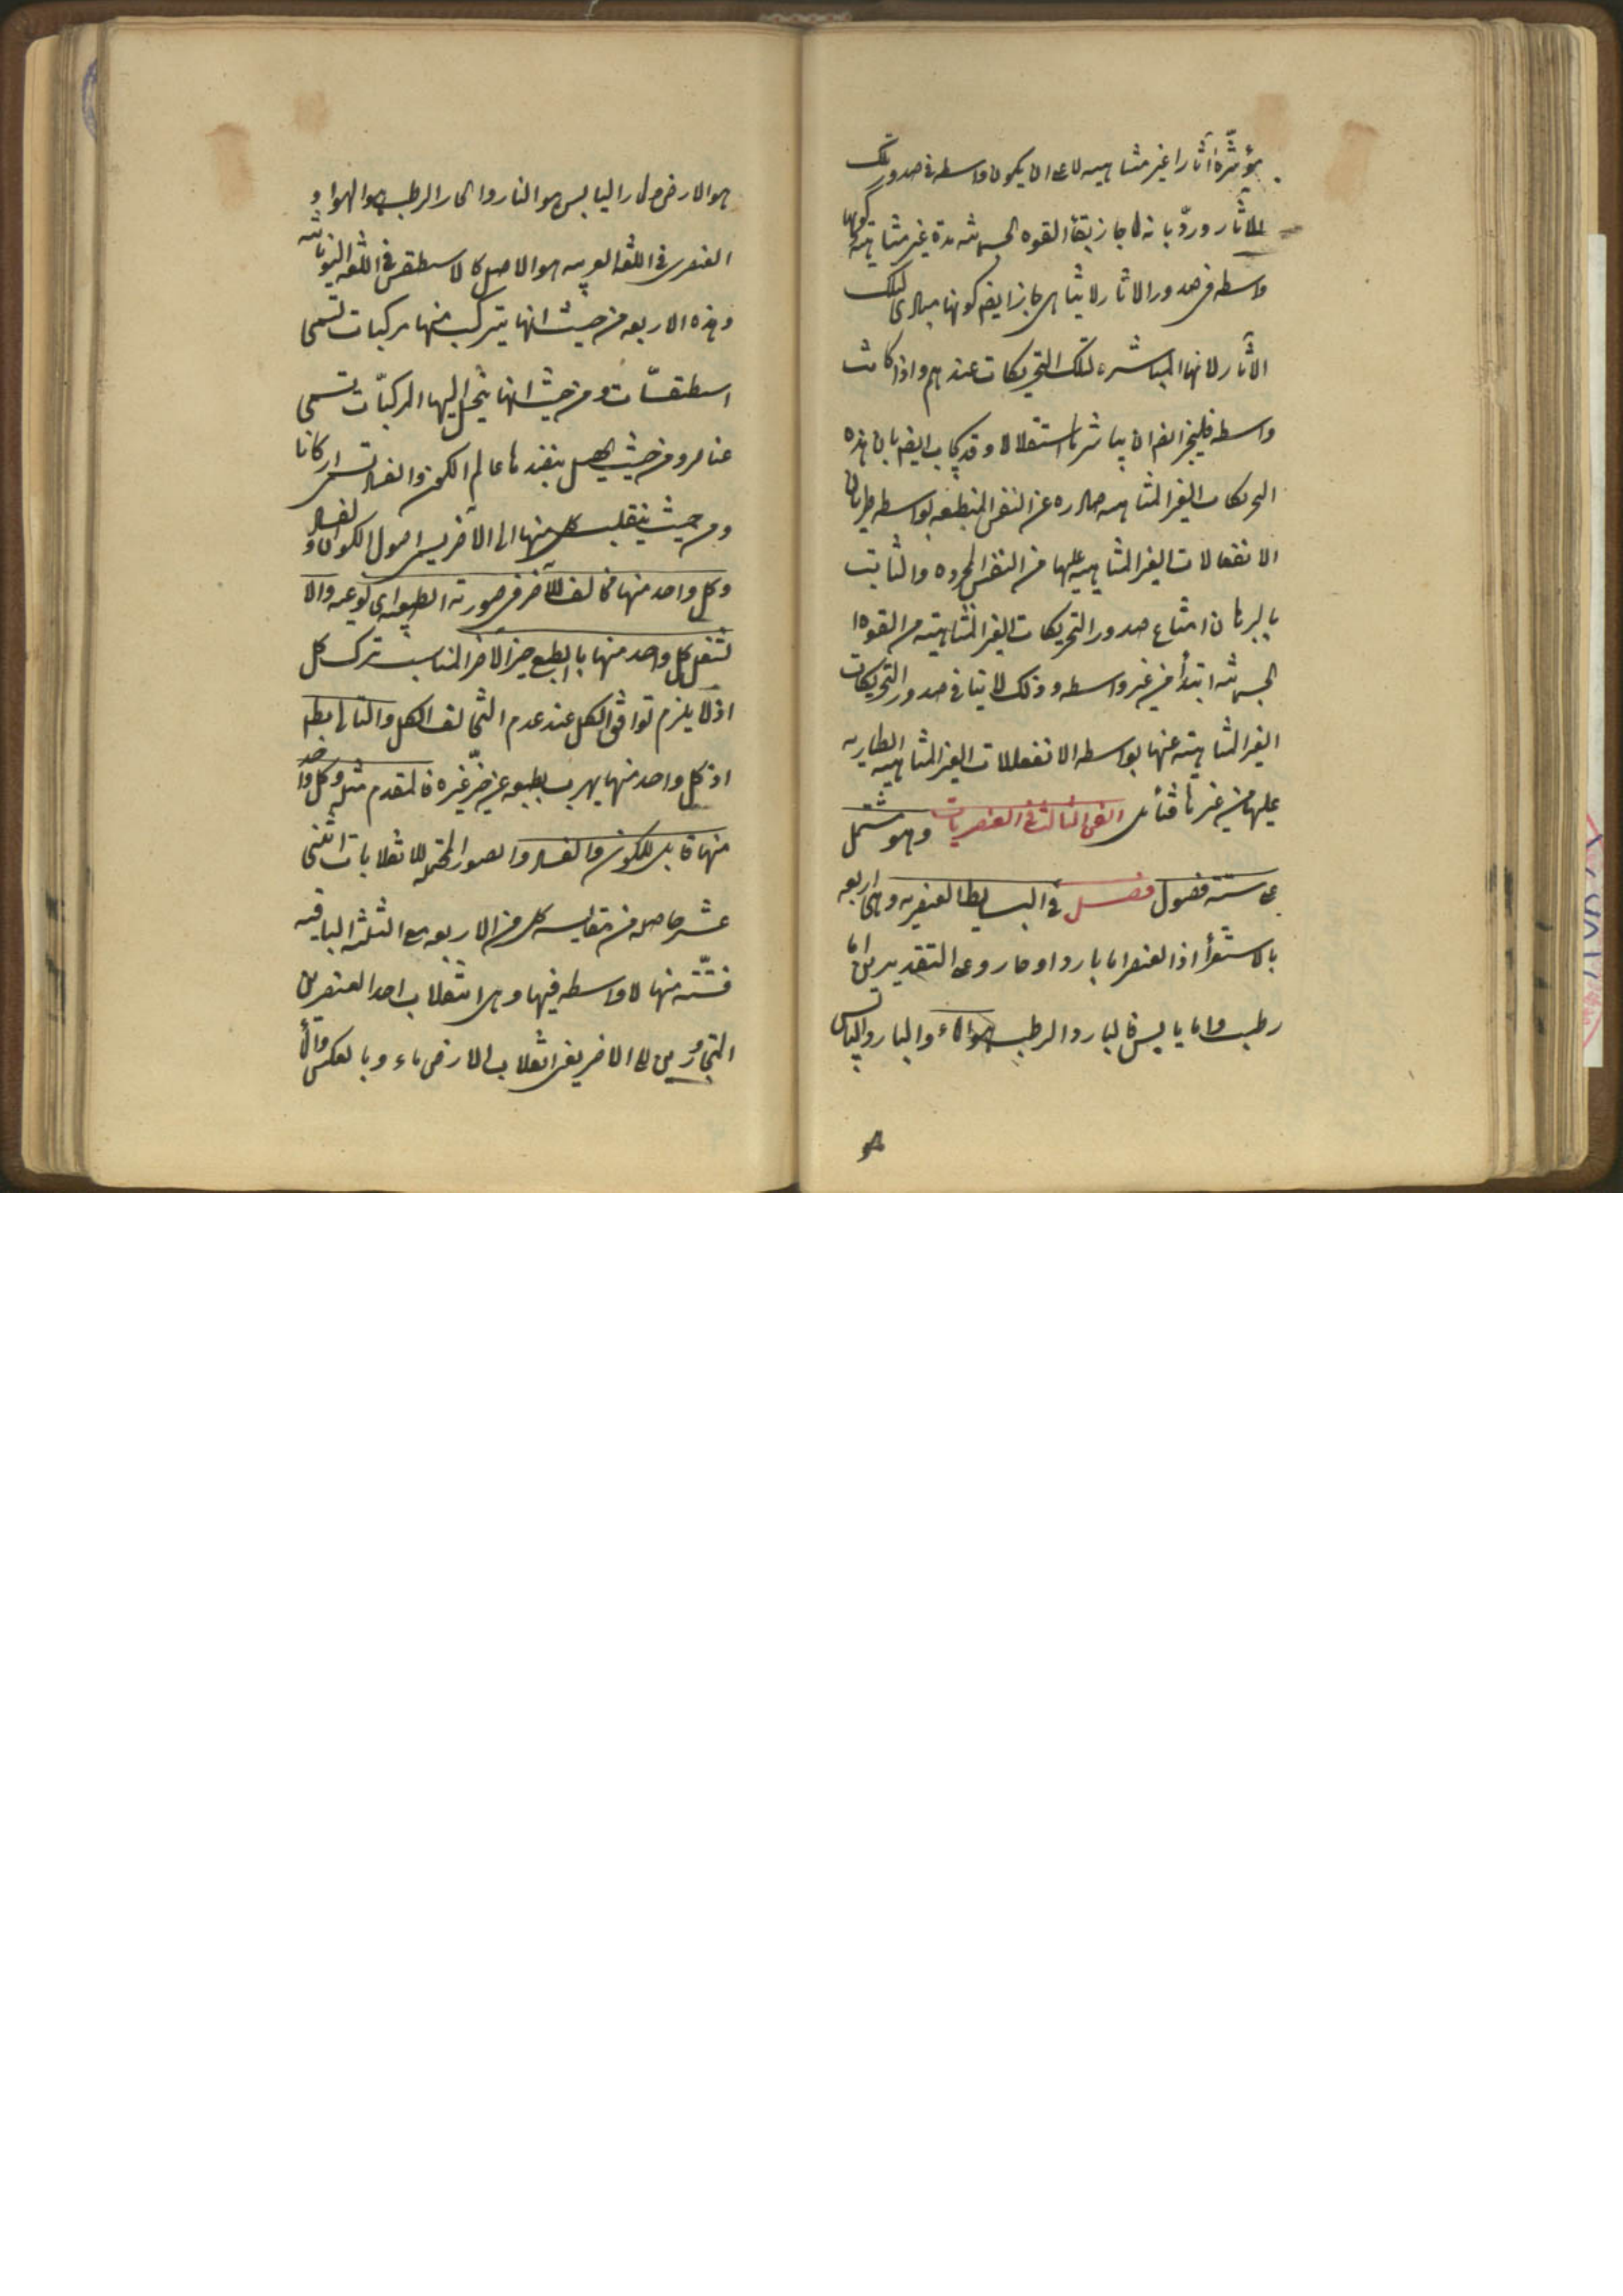 مؤثرة آثارا غير متناهيه لا على ان يكون واسطه في صدور تلك
الاثار وردّ بانه لما جاز بقأ القوه الجسميه مدة غير متناهيه وكونها
واسطه في صدور الاثار لا يتناهى جاز ايضا كونها مبادى لتلك
الآثار لانها المباشره لتلك التحريكات عندهم واذا كانت
واسطه فليجز ايضا ان يباشرها استقلالا وقد يجاب ايضا بان هذه
التحريكات الغير المتناهيه صادره عن النفس المنطبعه بواسطه طريان
الانفعالات الغير المتناهيه عليها من النفس المجرده والثابت
بالبرهان امتناع صدور التحريكات الغير المتناهيته من القوه ا
الجسميه ابتدأ من غير واسطه وذلك لا ينافى صدور التحريكات
الغير المتناهيته عنها بواسطه الانفعالات الغير المتناهيه الطاريه
عليها من غيرها فتأمل الفن الثالث فى العنصريات وهو مشتمل
على سته فصول فصل فى البسايط العنصريه وهى اربعه
بالاستقرأ اذ العنصر اما بارد او حار وعلى التقديرين اما
رطب واما يابس فالبارد الرطب هو الماء والبارد اليابس
هو
هو الارض والحار اليابس هو النار والحار الرطب هو الهوا و
العنصر فى اللغه العربيه هو الاصل كالاسطقس فى اللغه اليونانيه
وهذه الاربعه من حيث انها يتركب منها مركبات تسمى
اسطقسّات ومن حيث انها ينحل اليها المركبّات تسمى
عناصر ومن حيث يحصل بنضدها عالم الكون والفساد تسمى اركانا
ومن حيث ينقلب كل منها الى الآخر يسمى اصول الكون والفساد
وكل واحد منها مخالف للآخر فى صورته الطبيعيه اى النوعيه والا
لشغل كل واحد منها بالطبع حيز الآخر المناسب ترك كل
اذ لا يلزم توافق الكل عند عدم التخالف الكل والتالى بطم
اذ كل واحد منها يهرب بطبعه عن حيّز غيره فالمقدم مثله وكل واحد
منها قابل للكون والفساد والصور المحتمله للانقلابات اثنى
عشر حاصله من مقايسه كل من الاربعه مع الثلثه الباقيه
فستّه منها لا واسطه فيها وهى انقلاب احد العنصرين
المتجاورين الى الاخر يعنى انقلاب الارض ماء وبالعكس والمأ